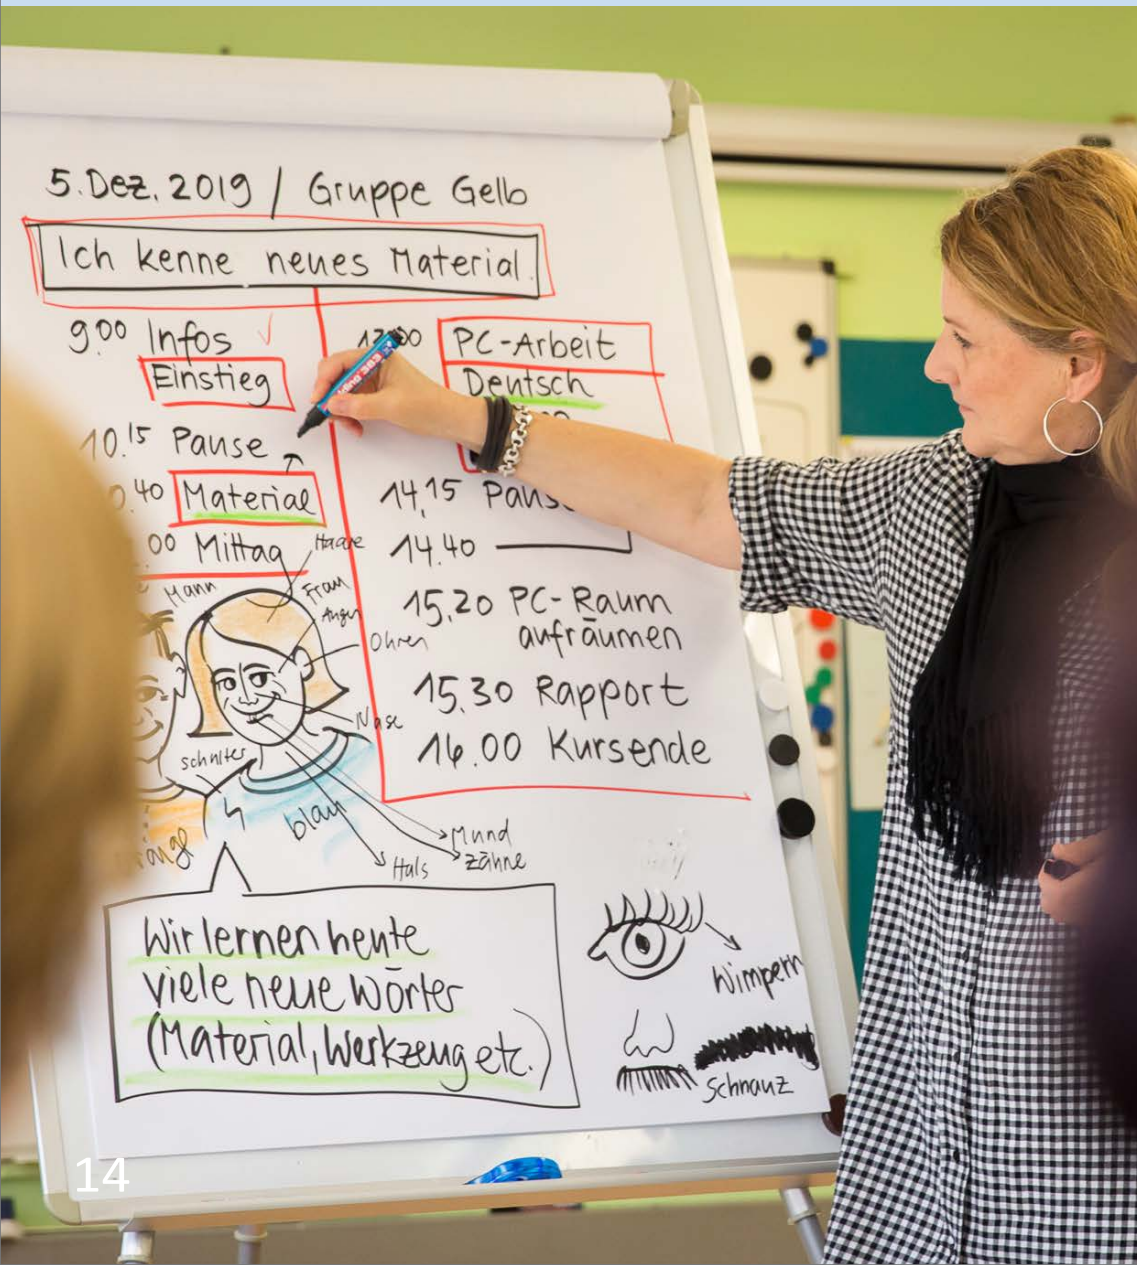 5. Dez. 2019 / Gruppe Gelb
Ich kenne neues Material.
9.00 Infos
Einstieg
10.15 Pause
40 Material
00 Mittag
00 PC-Arbeit
Deutsch
14,15 Paus
14.40
15,20 PC-Raum
aufräumen
15,30 Rapport
16.00 Kursende
Haare
Mann
Frau
Augen
Ohren
Nase
schulter
blau
Mund
Zähne
Hals
Wir lernen heute
viele neue Wörter
(Material, Werkzeug etc.)
Wimpern
Schnauz
14